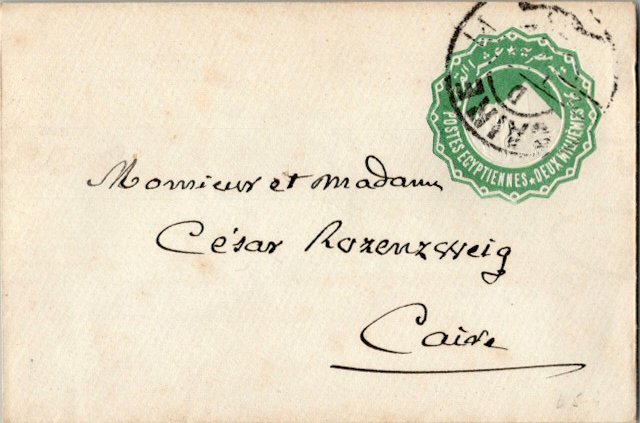 POSTES EGYPTIENNES ★ DEUX MILLIÈMES
CAIRE
D
Monsieur et Madame
César Rozenzweig
Caire